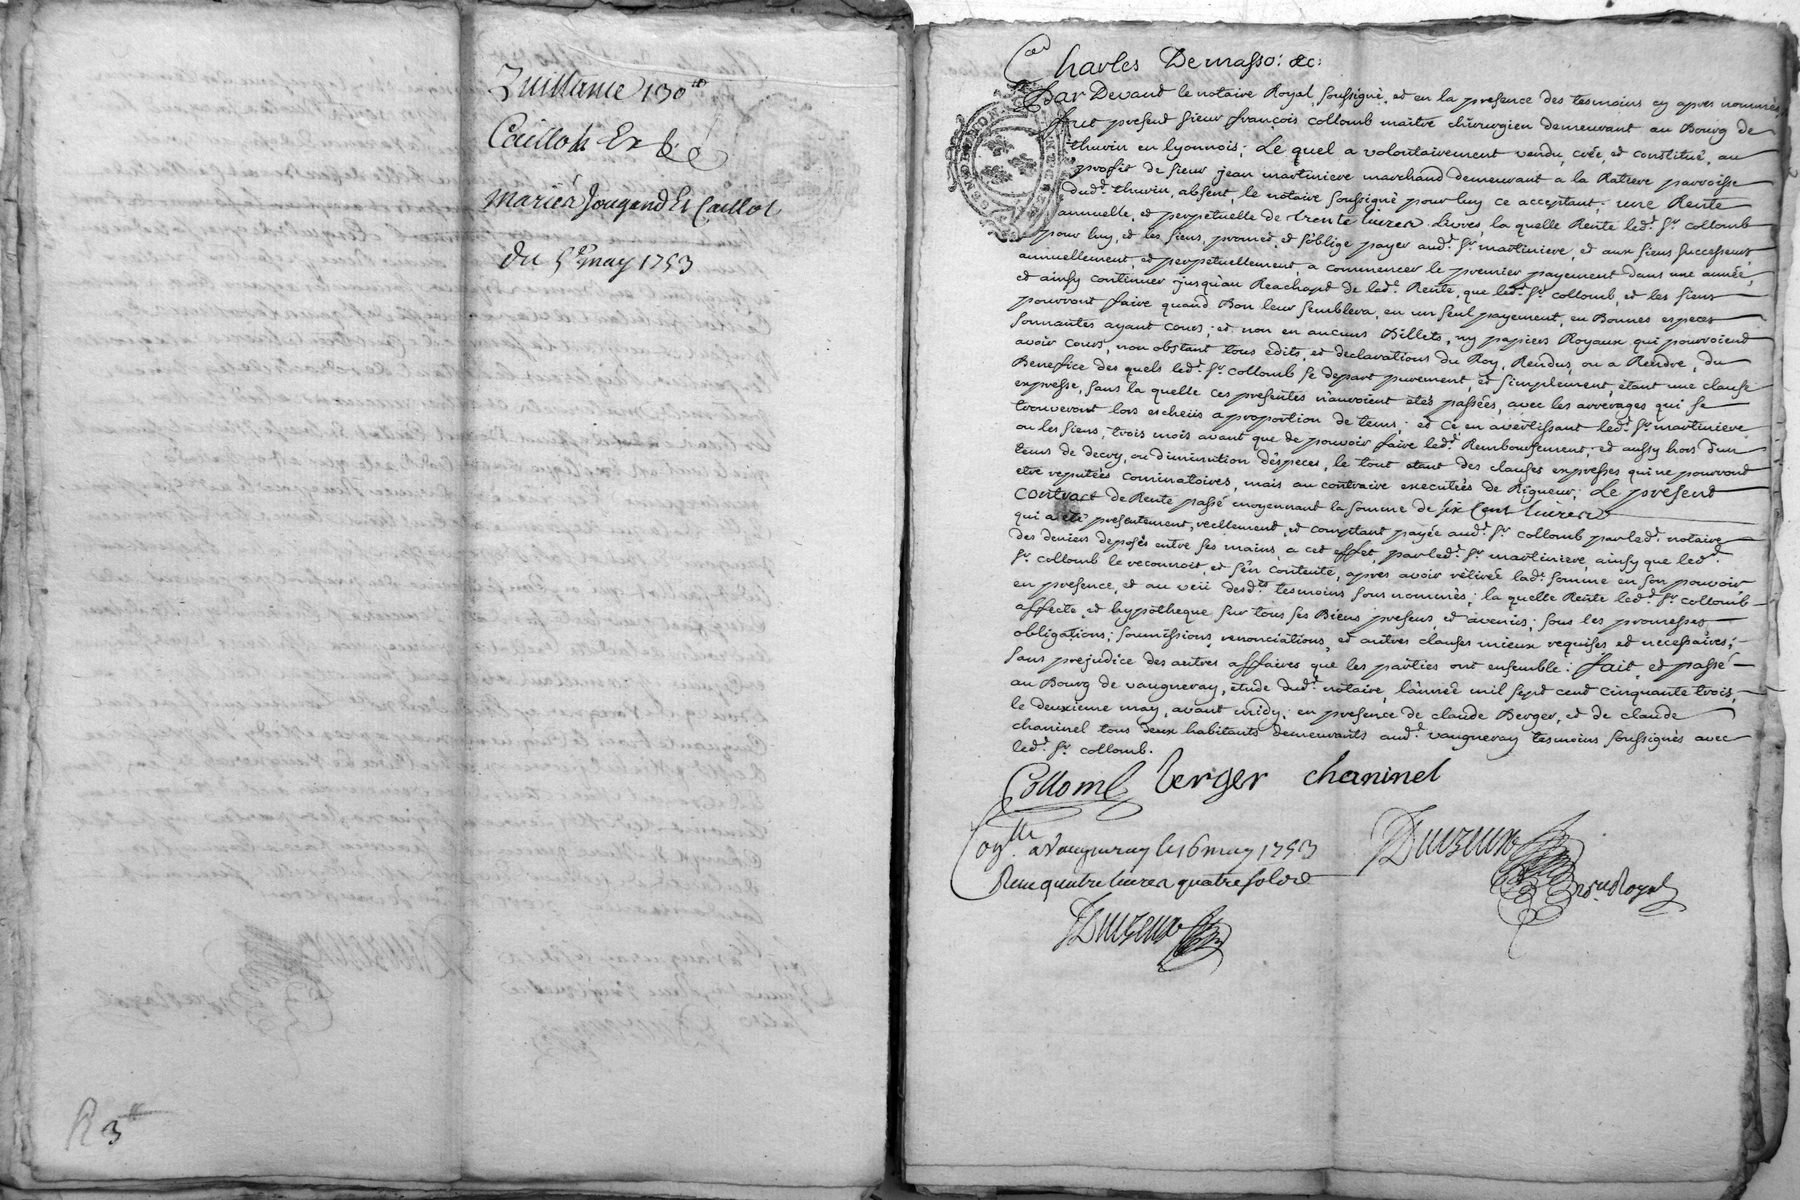 Quittance 130 ₶
Caillot Er
mariés Jougand Et Caillot
du 5e may 1753
R 3 ₶
Charles Demasso: &c:
Par Devant le notaire Royal, soussigné, et en la presence des tesmoins cy apres nommés
fut present sieur françois collomb maitre chirurgien demeurant au Bourg de
thurin en lyonnois; Le quel a volontairement vendu, créé, et constitué, au
profit de sieur jean martiniere marchand demeurant a la Ratiere parroisse
dudt thurin, absent, le notaire soussigné pour luy ce acceptant; une Rente
annuelle, et perpetuelle de trente livres Livres, la quelle Rente ledt sr collomb
pour luy, et les siens, promet, et s'oblige payer audt sr martiniere, et aux siens successeurs
annuellement et perpetuellement, a commencer le premier payement dans une année,
et ainsy continuer jusqu'au Reachept de ladte Rente, que ledt sr collomb, et les siens
pourront faire quand Bon leur semblera, en un seul payement, en Bonnes especes
sonnantes ayant cours; et non en aucuns Billets, ny papiers Royaux qui pourroient
avoir cours, non obstant tous édits, et declarations du Roy, Rendus, ou a Rendre, du
Benefice des quels ledt sr collomb se depart purement et simplement, étant une clause
expresse, sans la quelle ces presentes n'auroient étés passées, avec les arrérages qui se
trouveront lors escheus a proportion de tems; et Ce en avertissant ledt sr martiniere
ou les siens, trois mois avant que de pouvoir faire ledt Remboursement; et aussy hors d'un
tems de decry, ou diminution d'éspeces, le tout etant des clauses expresses qui ne pourront
etre reputées cominatoires, mais au contraire executées de Rigueur; Le present
contract de Rente passé moyennant la somme de six Cent livres
qui a eté presentement, réellement, et comptant payée audt sr collomb par ledt notaire
des deniers deposés entre ses mains, a cet effet, par ledt sr martiniere, ainsy que ledt
sr collomb le reconnoit, et s'en contente, apres avoir rétirée ladte somme en son pouvoir
en presence, et au veü desdts tesmoins sous nommés; la quelle Rente ledt sr collomb
affecte, et hypotheque sur tous ses Biens presens, et avenir; sous les promesses
obligations; soumissions, renonciations, et autres clauses mieux requises et necessaires;
sans prejudice des autres affaires que les parties ont ensemble: fait et passé
au Bourg de vaugneray, étude dudt notaire, l'année mil sept cent cinquante trois,
le deuxieme may, avant midy; en presence de claude Berger, et de claude
chaninel tous deux habitants demeurants audt vaugneray tesmoins soussignés avec
ledt sr collomb.
Collomb berger chaninel
Conlle a Vaugneray le 16 may 1753
Reçu quatre livres quatre sols
nore Royal